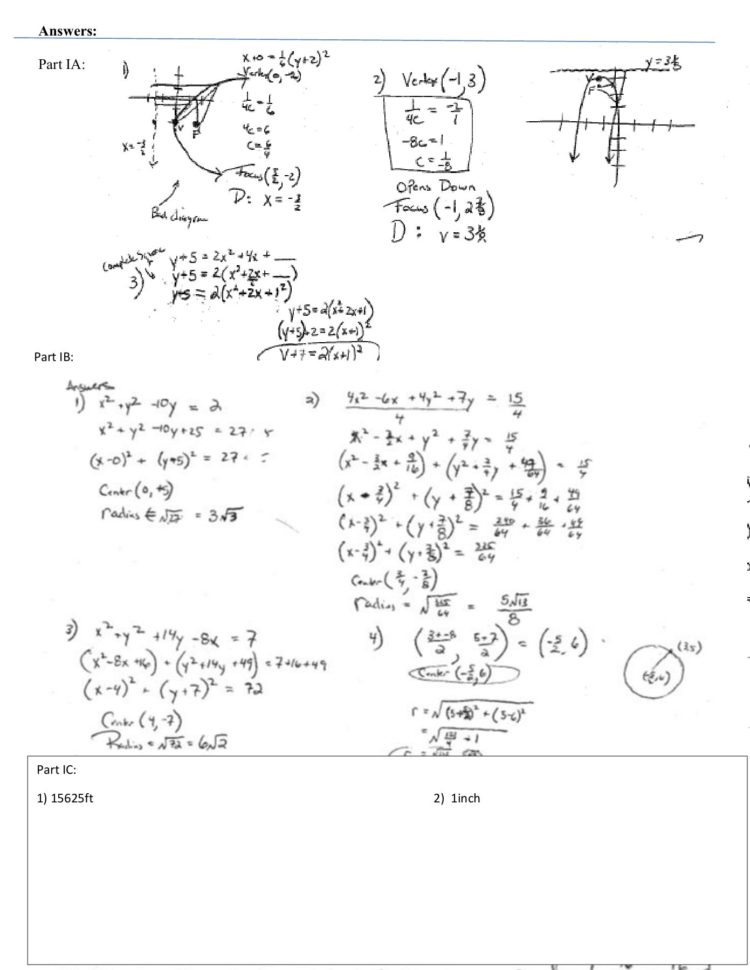 Answers:
Part IA:
1)
x+0 = 1/6 (y+2)²
Vertex (0, -2)
1/4c = 1/6
4c = 6
c = 6/4
Focus (3/2, -2)
D: x = -3/2
x = -3/2
V
F
Bad diagram
2) Vertex (-1, 3)
1/4c = -2/1
-8c = 1
c = 1/-8
Opens Down
Focus (-1, 2 7/8)
D: y = 3 1/8
y = 3 1/8
V
F
Complete Square
3) y+5 = 2x² + 4x + __
y+5 = 2(x² + 2x + __)
y+5 = 2(x² + 2x + 1²)
y+5 = 2(x² + 2x + 1)
(y+5)+2 = 2(x+1)²
y+7 = 2(x+1)²
Part IB:
Answers
1) x² + y² - 10y = 2
x² + y² - 10y + 25 = 27
(x-0)² + (y+5)² = 27
Center (0, +5)
radius = √27 = 3√3
2) 4x² - 6x + 4y² + 7y / 4 = 15/4
x² - 3/2x + y² + 7/4y = 15/4
(x² - 3/2x + 9/16) + (y² + 7/4y + 49/64) = 15/4
(x - 3/4)² + (y + 7/8)² = 15/4 + 9/16 + 49/64
(x - 3/4)² + (y + 7/8)² = 240/64 + 36/64 + 49/64
(x - 3/4)² + (y + 7/8)² = 325/64
Center (3/4, -7/8)
radius = √325/64 = 5√13/8
3) x² + y² + 14y - 8x = 7
(x² - 8x + 16) + (y² + 14y + 49) = 7+16+49
(x-4)² + (y+7)² = 72
Center (4, -7)
Radius = √72 = 6√2
4) (3+-8/2, 5+7/2) = (-5/2, 6)
Center (-5/2, 6)
(3,5)
(-5/2, 6)
+ (5-6)²
+ 1
r =
Part IC:
1) 15625ft
2) 1inch